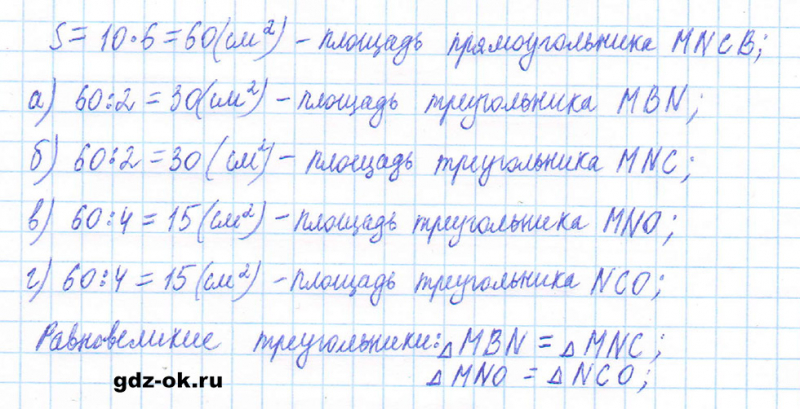 S = 10·6 = 60 (см²) – площадь прямоугольника MNCB;
а) 60:2 = 30 (см²) – площадь треугольника MBN;
б) 60:2 = 30 (см²) – площадь треугольника MNC;
в) 60:4 = 15 (см²) – площадь треугольника MNO;
г) 60:4 = 15 (см²) – площадь треугольника NCO;
Равновеликие треугольники: △MBN = △MNC;
△MNO = △NCO;
gdz-ok.ru